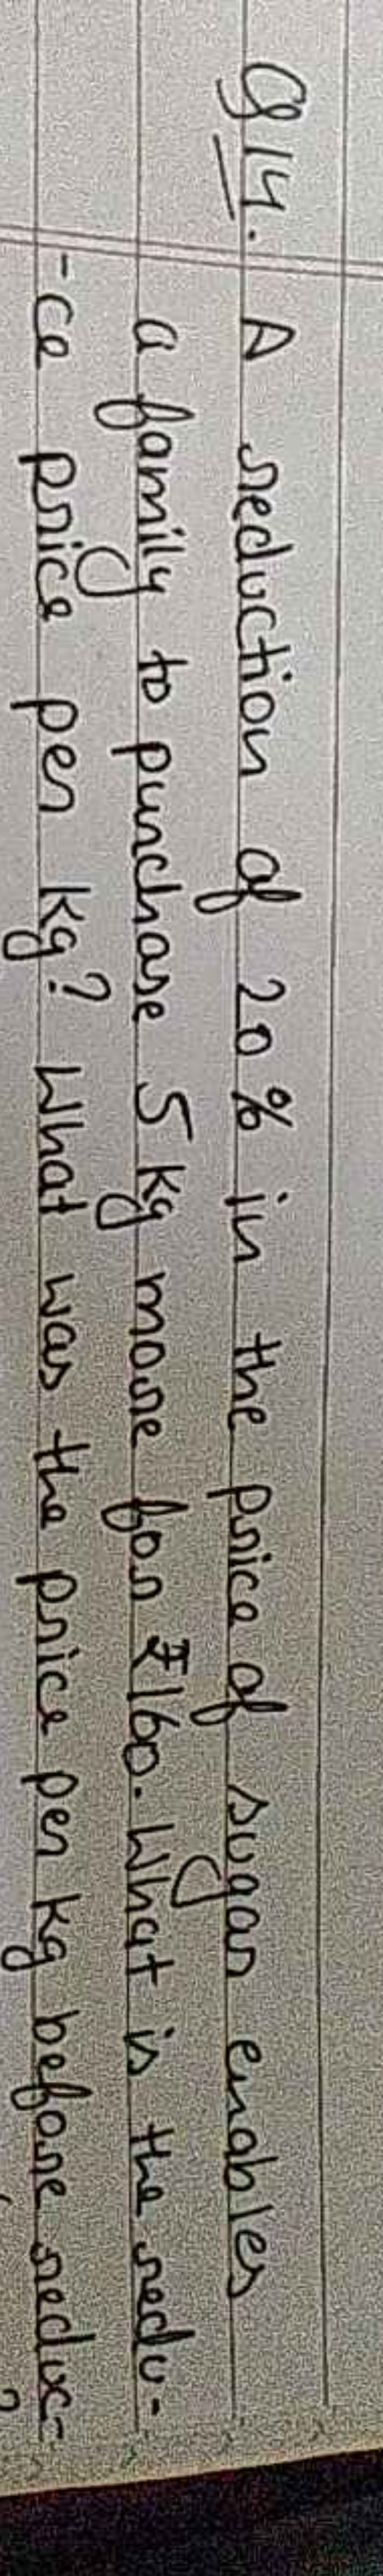 Q14. A reduction of 20% in the price of sugar enables
a family to purchase 5 kg more for ₹160. What is the redu-
-ce price per kg? What was the price per kg before reduc-